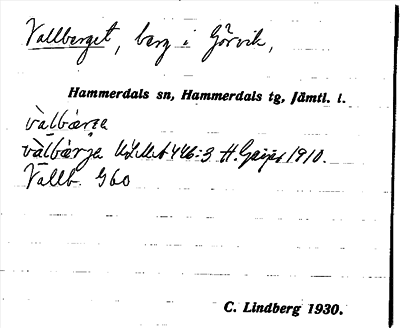 Vallberget, berg i Görvik,
Hammerdals sn, Hammerdals tg, Jämtl. l.
vàlbær̥a
vàlbær̥ja 446:3 H. Geijer 1910.
Vallb. G60
C. Lindberg 1930.